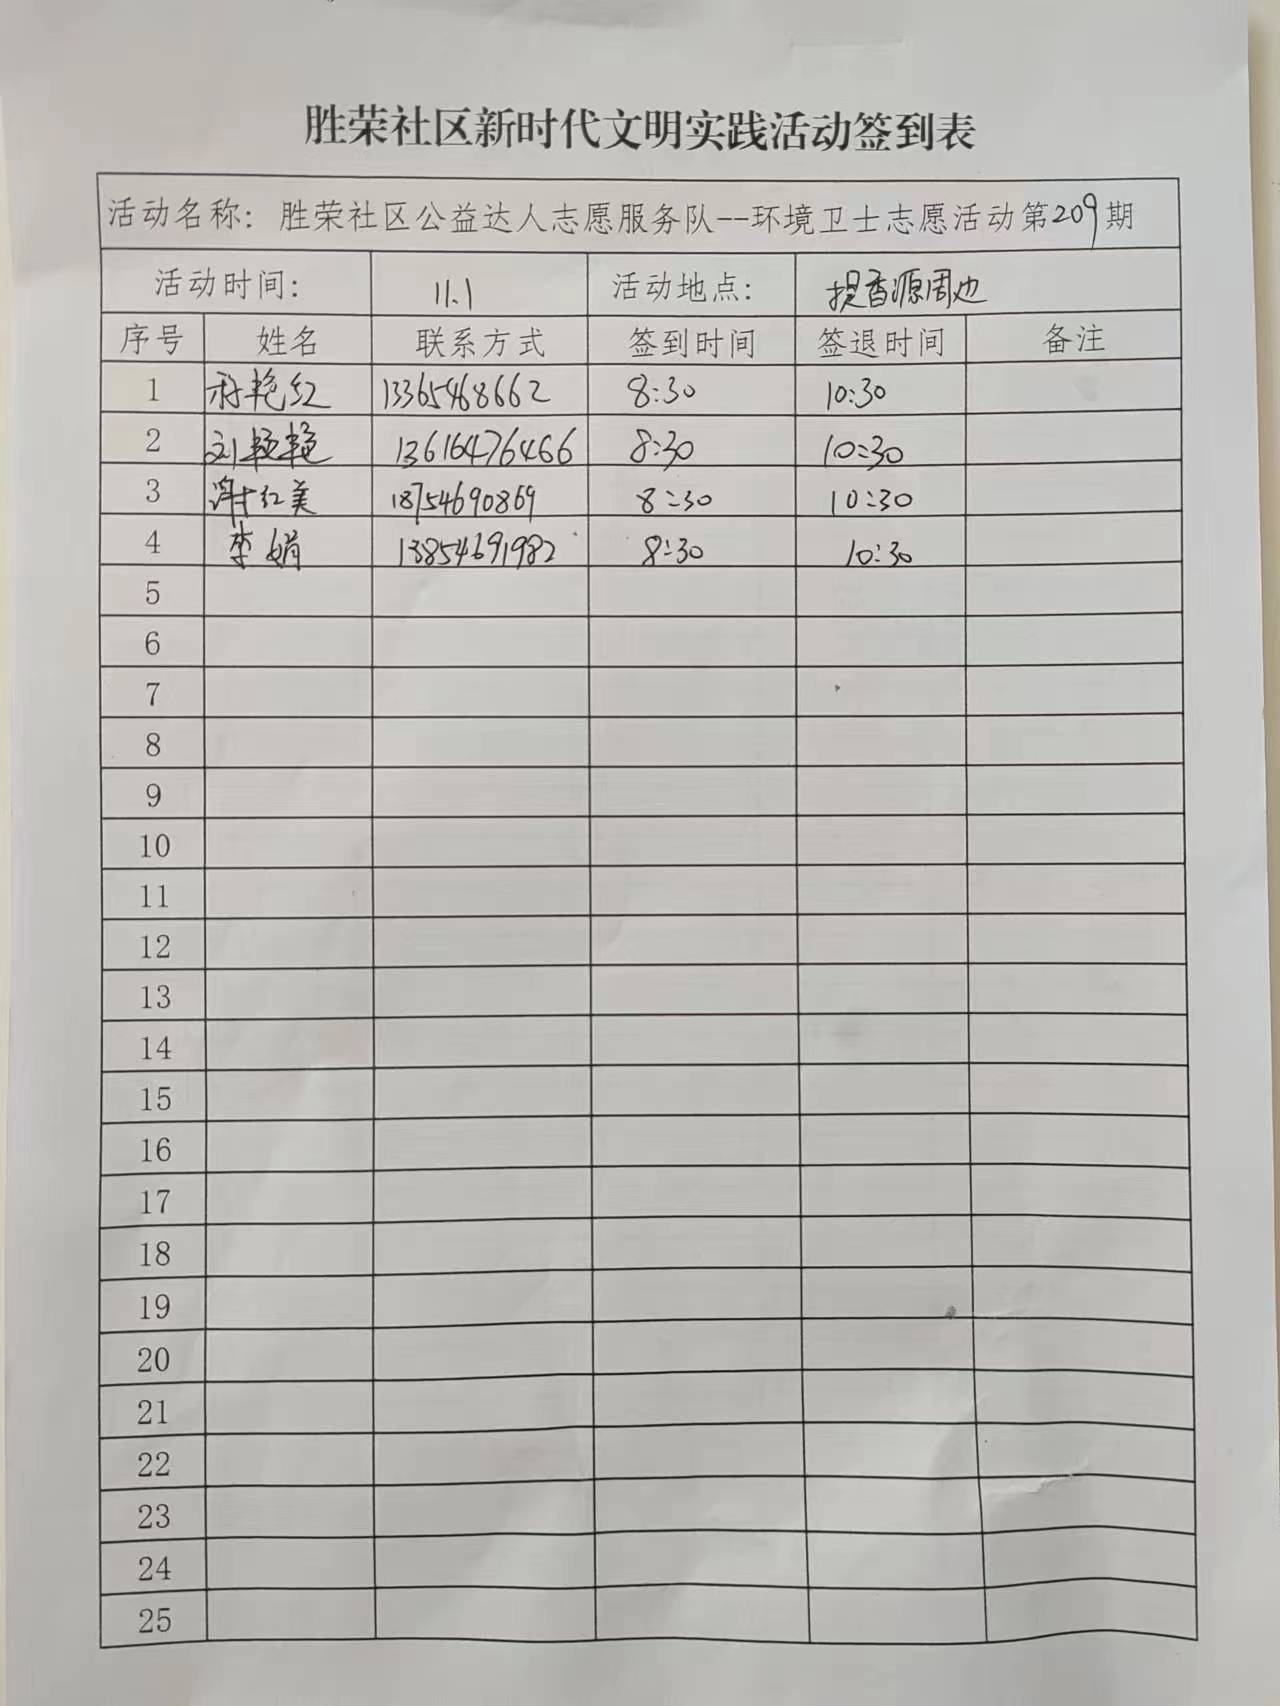 胜荣社区新时代文明实践活动签到表
活动名称：胜荣社区公益达人志愿服务队--环境卫士志愿活动第209期
活动时间： 11.1 活动地点： 提香源周边
序号 姓名 联系方式 签到时间 签退时间 备注
1 艳红 13365468662 8:30 10:30
2 刘艳艳 13616476466 8:30 10:30
3 谢红美 18754690869 8:30 10:30
4 李娟 13854691982 8:30 10:30
5
6
7
8
9
10
11
12
13
14
15
16
17
18
19
20
21
22
23
24
25